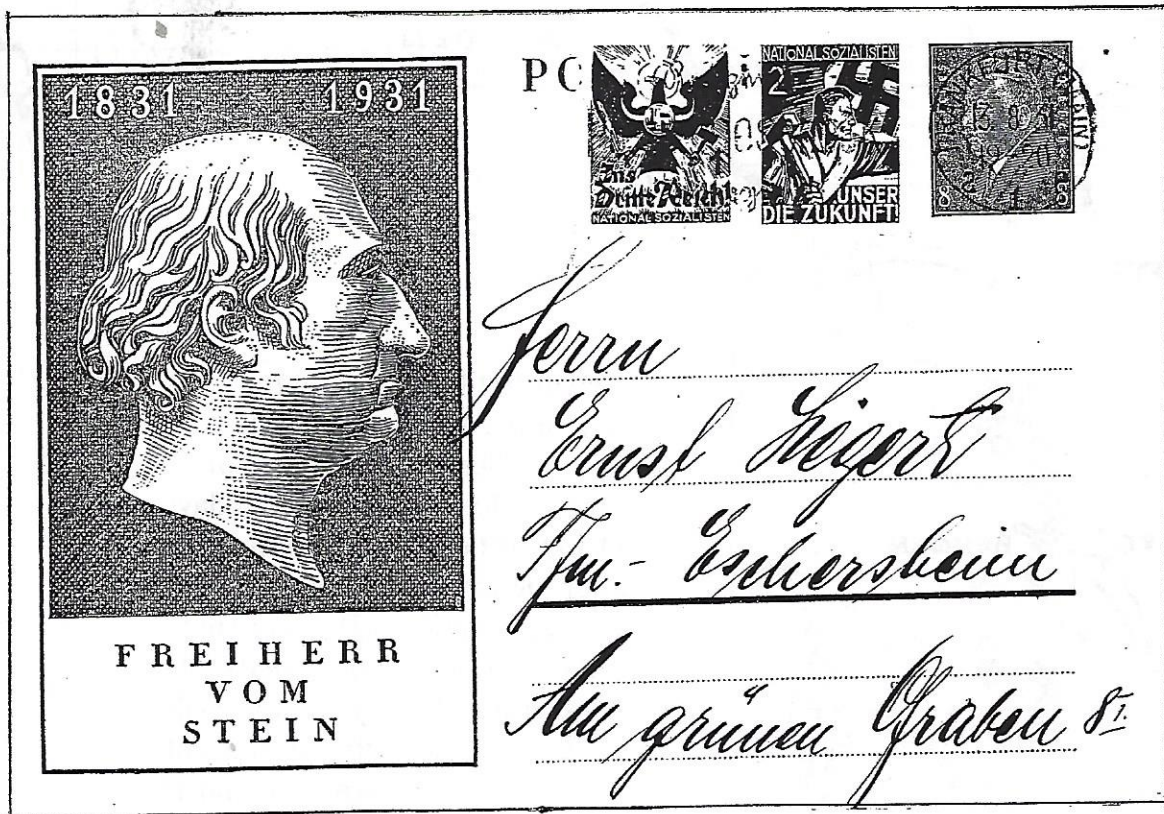 1831 1931
FREIHERR
VOM
STEIN
PO
Ins
Dritte Reich!
NATIONAL SOZIALISTEN
NATIONAL SOZIALISTEN
2
UNSER
DIE ZUKUNFT!
FRANKFURT (MAIN)
8 8
1
Herrn
Ernst
Ffm.- Eschersheim
Am grünen Graben 8 I.